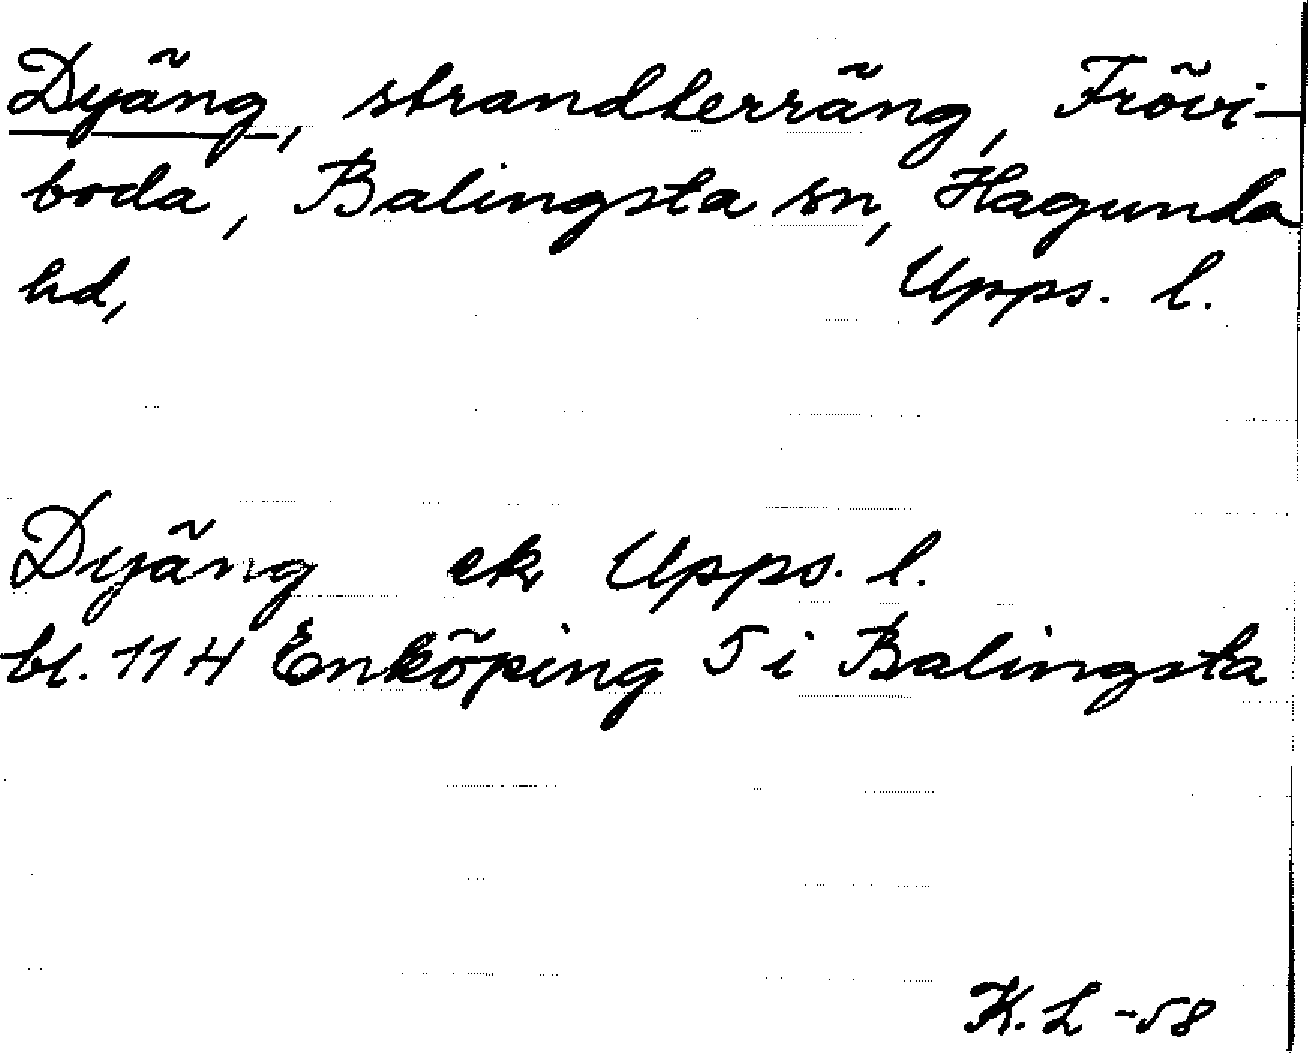 Dyäng, strandterräng, Frövi-
boda, Balingsta sn, Hagunda
hd, Upps. l.
Dyäng ek Upps. l.
bl. 11 H Enköping 5 i Balingsta
K. L -58